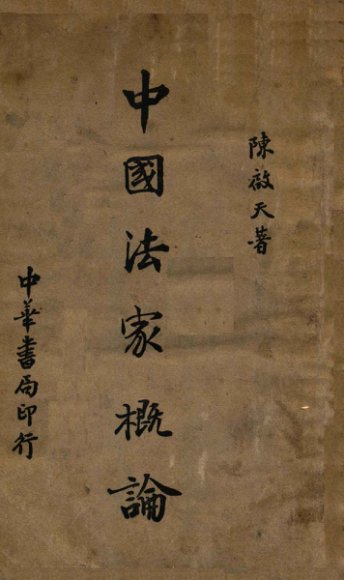 陳啟天著
中國法家概論
中華書局印行